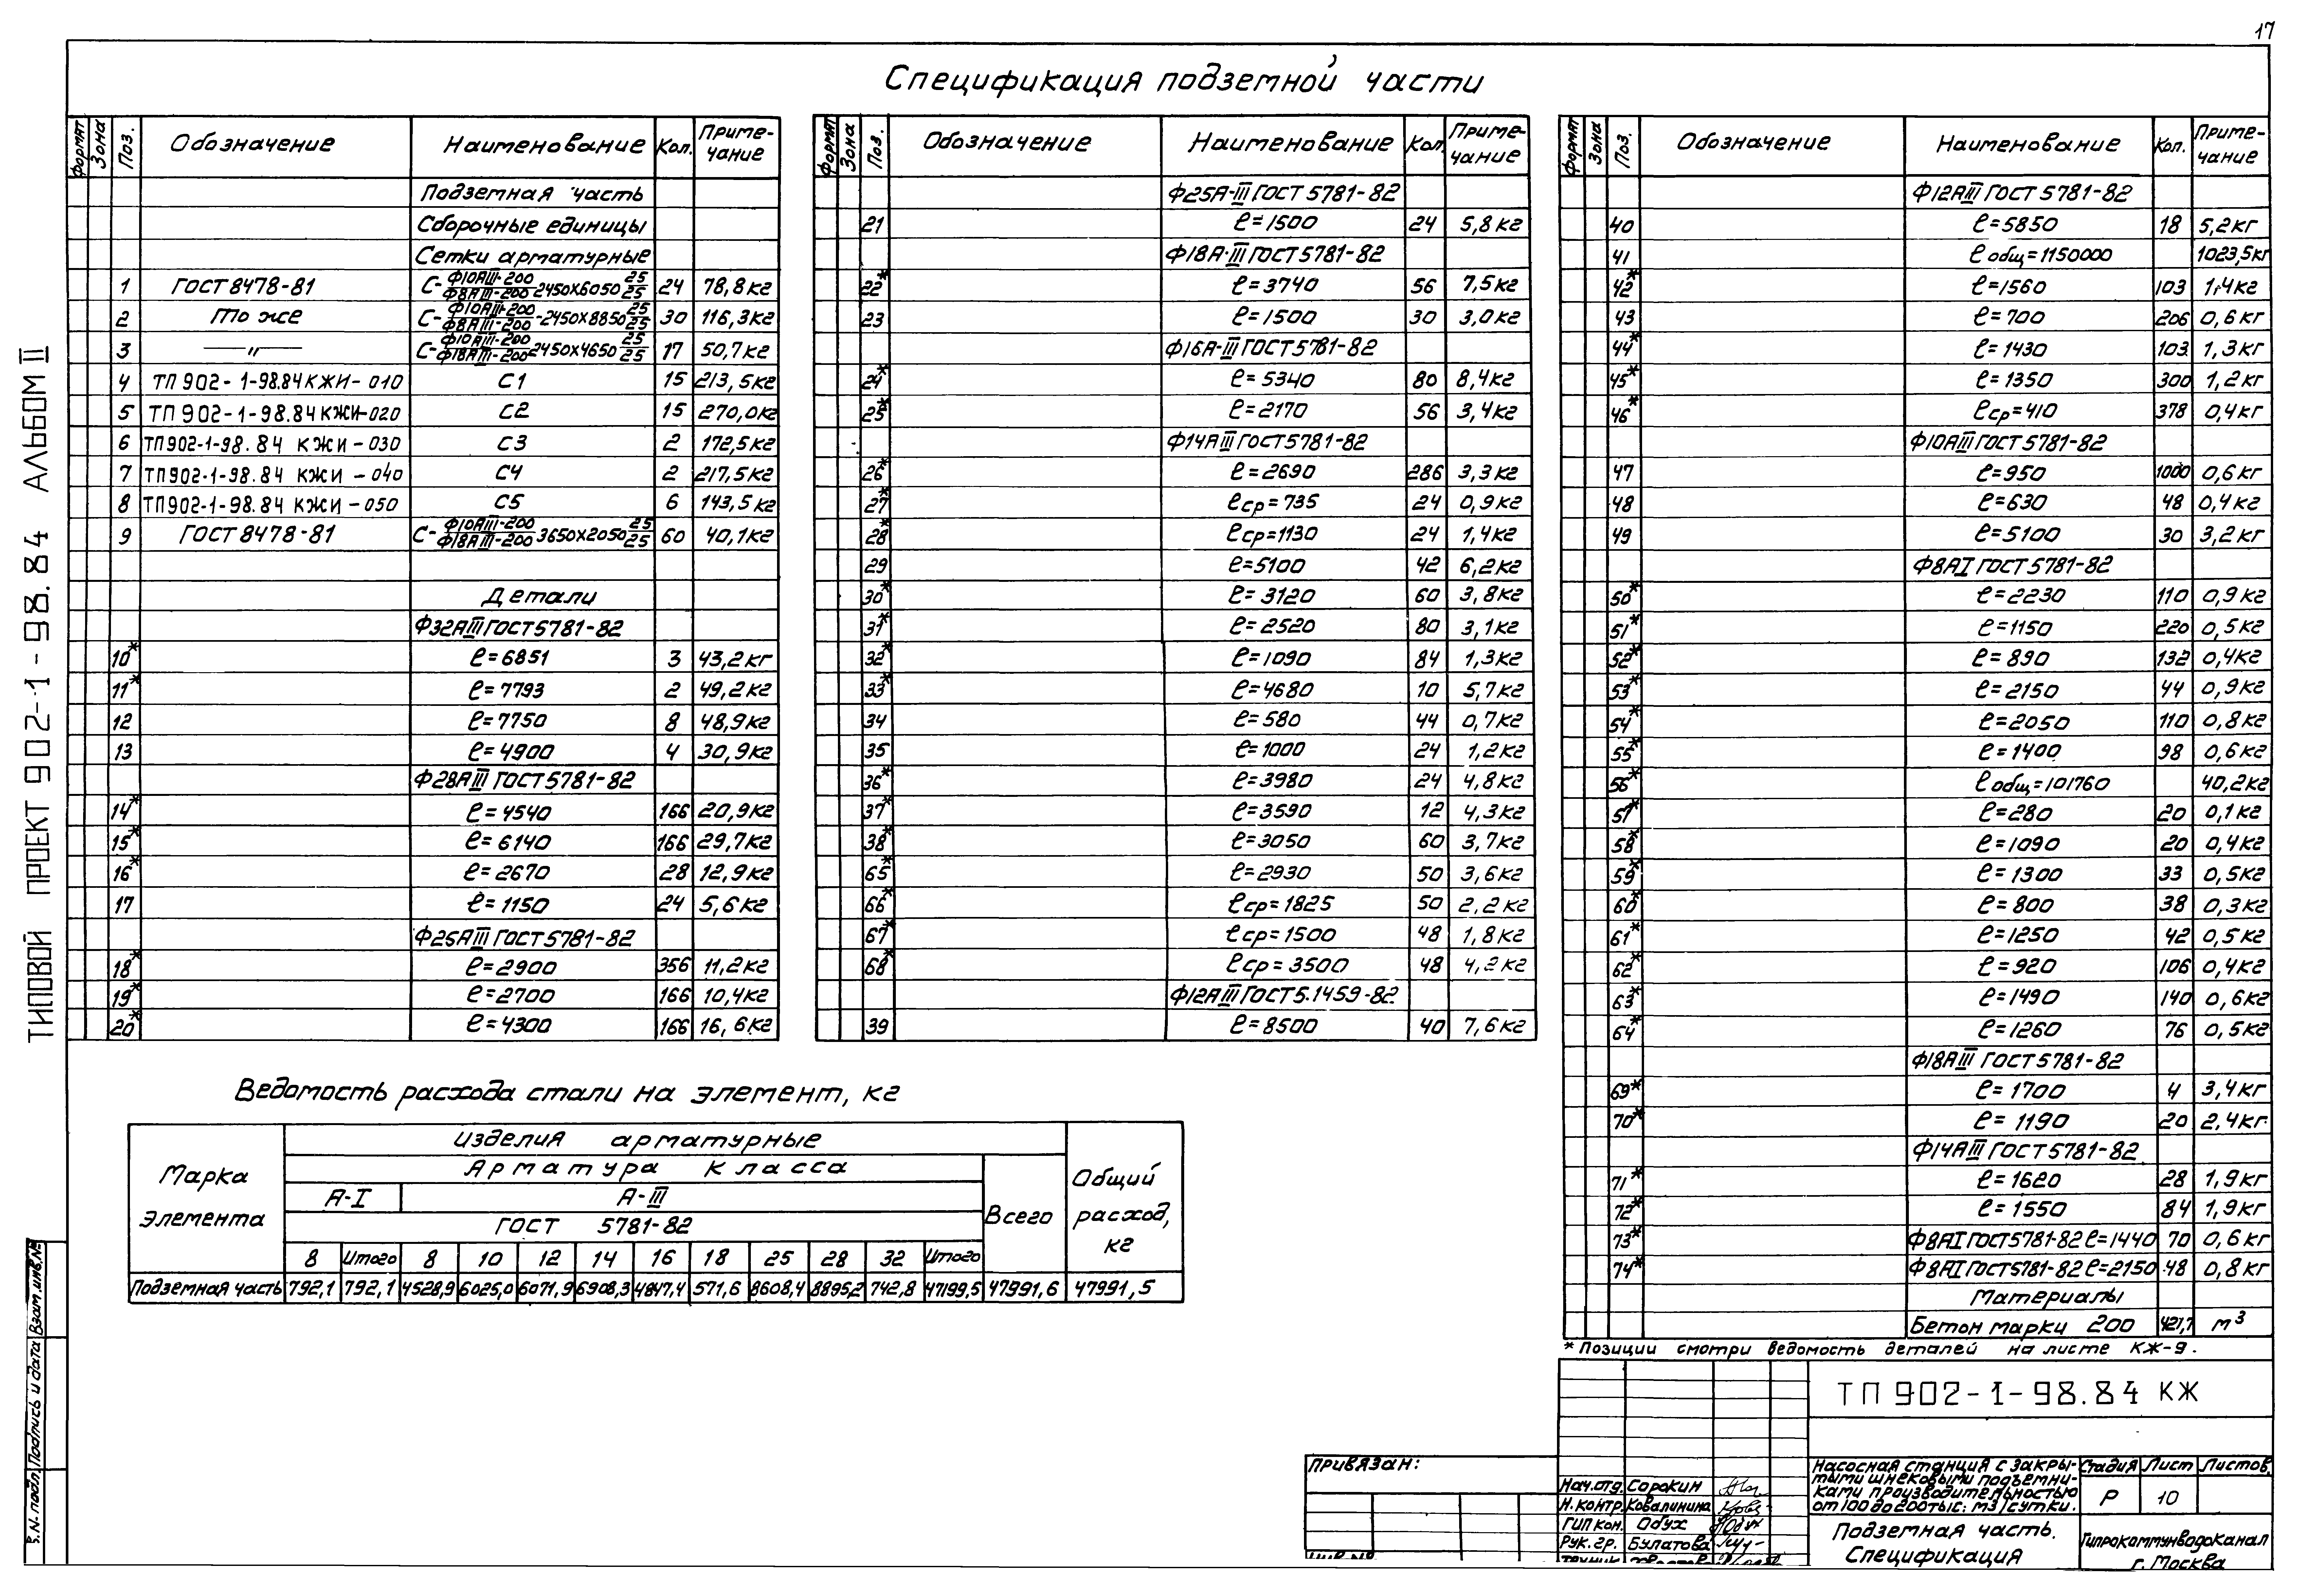 17
Спецификация подземной части
Формат Зона Поз. Обозначение Наименование Кол. Приме-чание
Подземная часть
Сборочные единицы
Сетки арматурные
1 ГОСТ 8478-81 С-Ф10АIII-200/Ф8АIII-200 2450х6050 25/25 24 78,8кг
2 То же С-Ф10АIII-200/Ф8АIII-200-2450х8850 25/25 30 116,3кг
3 —"— С-Ф10АIII-200/Ф18АIII-200 2450х4650 25/25 17 50,7кг
4 ТП 902-1-98.84 КЖИ-010 С1 15 213,5кг
5 ТП 902-1-98.84 КЖИ-020 С2 15 270,0кг
6 ТП 902-1-98.84 КЖИ-030 С3 2 172,5кг
7 ТП 902-1-98.84 КЖИ-040 С4 2 217,5кг
8 ТП 902-1-98.84 КЖИ-050 С5 6 143,5кг
9 ГОСТ 8478-81 С-Ф10АIII-200/Ф18АIII-200 3650х2050 25/25 60 40,1кг
Детали
Ф32АIII ГОСТ 5781-82
10* ℓ=6851 3 43,2кг
11* ℓ=7793 2 49,2кг
12 ℓ=7750 8 48,9кг
13 ℓ=4900 4 30,9кг
Ф28АIII ГОСТ 5781-82
14* ℓ=4540 166 20,9кг
15* ℓ=6140 166 29,7кг
16* ℓ=2670 28 12,9кг
17 ℓ=1150 24 5,6кг
Ф25АIII ГОСТ 5781-82
18* ℓ=2900 356 11,2кг
19* ℓ=2700 166 10,4кг
20* ℓ=4300 166 16,6кг
Формат Зона Поз. Обозначение Наименование Кол. Приме-чание
Ф25А-III ГОСТ 5781-82
21 ℓ=1500 24 5,8кг
Ф18А-III ГОСТ 5781-82
22* ℓ=3740 56 7,5кг
23 ℓ=1500 30 3,0кг
Ф16А-III ГОСТ 5781-82
24* ℓ=5340 80 8,4кг
25* ℓ=2170 56 3,4кг
Ф14АIII ГОСТ 5781-82
26* ℓ=2690 286 3,3кг
27* ℓср=735 24 0,9кг
28* ℓср=1130 24 1,4кг
29 ℓ=5100 42 6,2кг
30* ℓ=3120 60 3,8кг
31* ℓ=2520 80 3,1кг
32* ℓ=1090 84 1,3кг
33* ℓ=4680 10 5,7кг
34 ℓ=580 44 0,7кг
35 ℓ=1000 24 1,2кг
36* ℓ=3980 24 4,8кг
37* ℓ=3590 12 4,3кг
38* ℓ=3050 60 3,7кг
65* ℓ=2930 50 3,6кг
66* ℓср=1825 50 2,2кг
67* ℓср=1500 48 1,8кг
68* ℓср=3500 48 4,2кг
Ф12АIII ГОСТ 5.1459-82
39 ℓ=8500 40 7,6кг
Формат Зона Поз. Обозначение Наименование Кол. Приме-чание
Ф12АIII ГОСТ 5781-82
40 ℓ=5850 18 5,2кг
41 ℓобщ=1150000 1023,5кг
42* ℓ=1560 103 1,4кг
43 ℓ=700 206 0,6кг
44* ℓ=1430 103 1,3кг
45* ℓ=1350 300 1,2кг
46* ℓср=410 378 0,4кг
Ф10АIII ГОСТ 5781-82
47 ℓ=950 1000 0,6кг
48 ℓ=630 48 0,4кг
49 ℓ=5100 30 3,2кг
Ф8АI ГОСТ 5781-82
50* ℓ=2230 110 0,9кг
51* ℓ=1150 220 0,5кг
52* ℓ=890 132 0,4кг
53* ℓ=2150 44 0,9кг
54* ℓ=2050 110 0,8кг
55* ℓ=1400 98 0,6кг
56* ℓобщ=101760 40,2кг
57* ℓ=280 20 0,1кг
58* ℓ=1090 20 0,4кг
59* ℓ=1300 33 0,5кг
60* ℓ=800 38 0,3кг
61* ℓ=1250 42 0,5кг
62* ℓ=920 106 0,4кг
63* ℓ=1490 140 0,6кг
64* ℓ=1260 76 0,5кг
Ф18АIII ГОСТ 5781-82
69* ℓ=1700 4 3,4кг
70* ℓ=1190 20 2,4кг
Ф14АIII ГОСТ 5781-82
71* ℓ=1620 28 1,9кг
72* ℓ=1550 84 1,9кг
73* Ф8АI ГОСТ 5781-82 ℓ=1440 70 0,6кг
74* Ф8АI ГОСТ 5781-82 ℓ=2150 48 0,8кг
Материалы
Бетон марки 200 427,7 м³
* Позиции смотри ведомость деталей на листе КЖ-9.
Ведомость расхода стали на элемент, кг
Марка элемента Изделия арматурные Общий расход, кг
Арматура класса Всего
А-I А-III
ГОСТ 5781-82
8 Итого 8 10 12 14 16 18 25 28 32 Итого
Подземная часть 792,1 792,1 4528,9 6025,0 6071,9 6908,3 4847,4 571,6 8608,4 8895,2 742,8 47199,5 47991,6 47991,5
ТИПОВОЙ ПРОЕКТ 902-1-98.84 АЛЬБОМ II
В.N-подл. Подпись и дата Взам.инв.№
Привязан:
ТП 902-1-98.84 КЖ
Нач.отд. Сорокин
Н.контр. Ковалинина
ГИП кон. Обух
Рук.гр. Булатова
Насосная станция с закры-
тыми шнековыми подъемни-
ками производительностью
от 100 до 200 тыс. м3/сутки.
Стадия Лист Листов
Р 10
Подземная часть.
Спецификация
Гипрокоммунводоканал
г. Москва